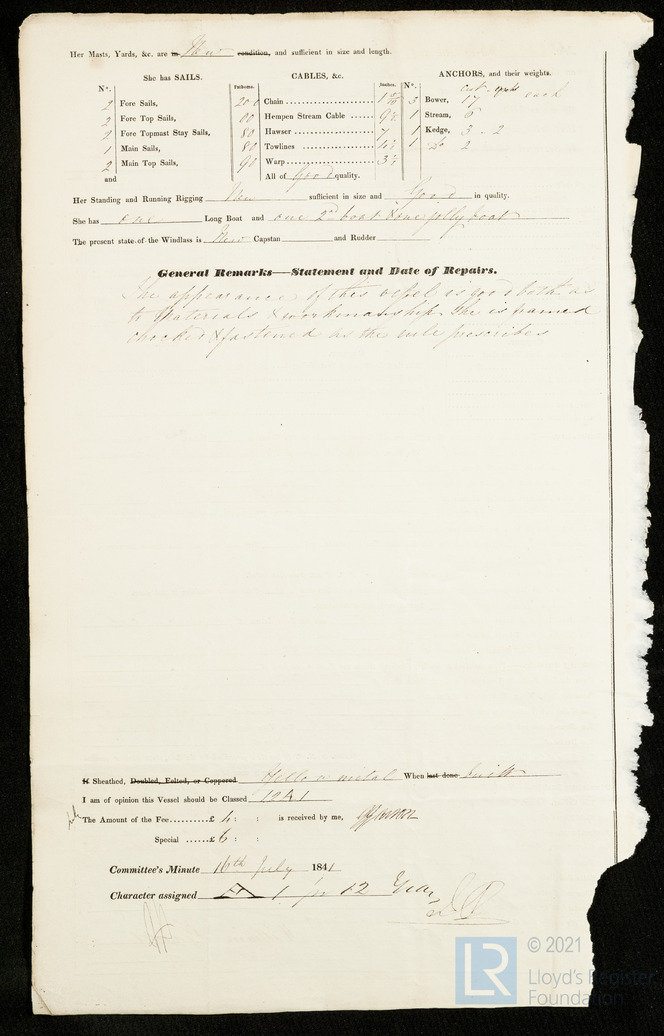 Her Masts, Yards, &c. are in New condition, and sufficient in size and length.
She has SAILS.
CABLES, &c.
ANCHORS, and their weights.
N°. Fathoms. Inches. N°. cwt each
2 Fore Sails, 200 Chain 3 Bower, 17
2 Fore Top Sails, Hempen Stream Cable 1 Stream, 6
2 Fore Topmast Stay Sails, 80 Hawser 7 1 Kedge, 3 - 2
1 Main Sails, 80 Towlines 1 Do 2
2 Main Top Sails, 90 Warp
and All of Good quality.
Her Standing and Running Rigging New sufficient in size and Good in quality.
She has one Long Boat and one 2nd boat & one jolly boat
The present state of the Windlass is New Capstan and Rudder
General Remarks—Statement and Date of Repairs.
The appearance of this vessel is good both as
to Materials & workmanship She is framed
chocked & fastened as the rule prescribes
If Sheathed, Doubled, Felted, or Coppered Yellow metal When last done built
I am of opinion this Vessel should be Classed 12 A 1
The Amount of the Fee..........£ 4 : : is received by me,
Special ......£ 6 : :
Committee's Minute 16th July 1841
Character assigned A 1 for 12 Years
LR © 2021
Lloyd's Register
Foundation